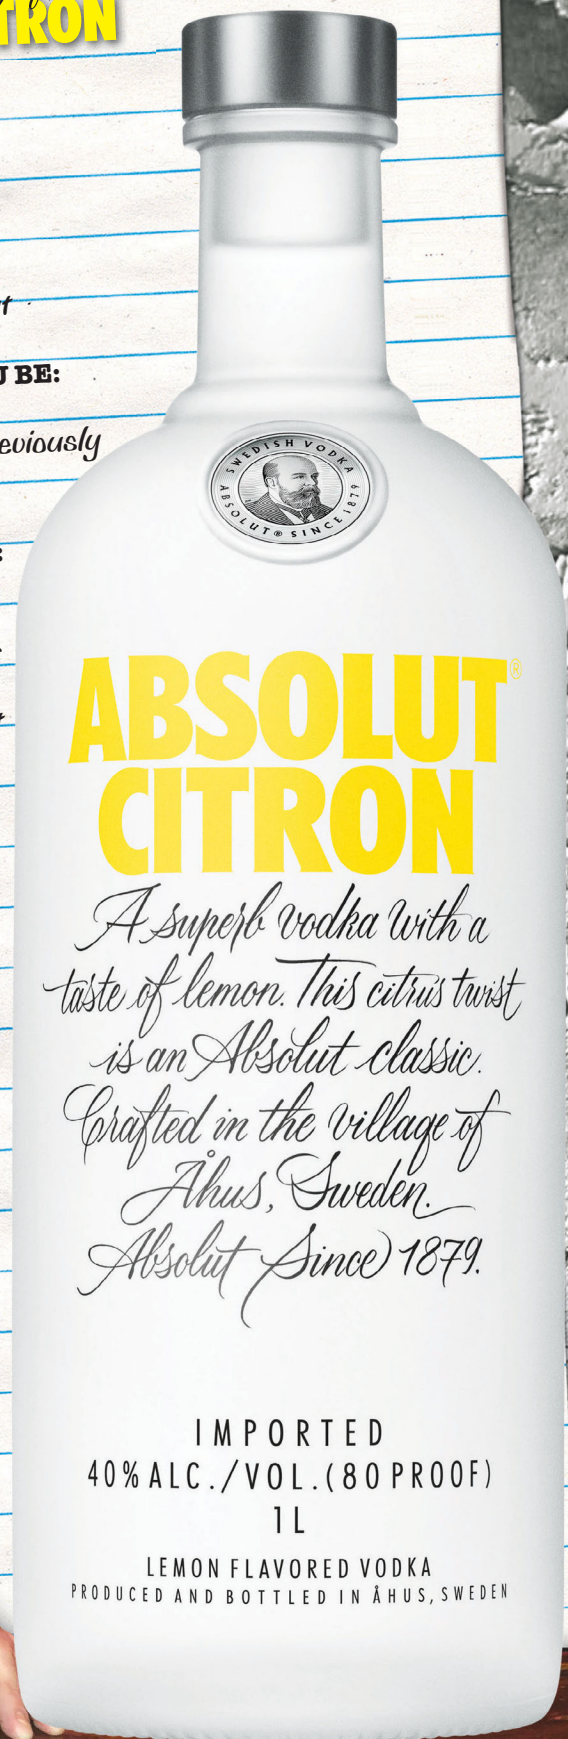 TRON
J BE:
eviously
SWEDISH VODKA
ABSOLUT® SINCE 1879
ABSOLUT®
CITRON
A superb vodka with a
taste of lemon. This citrus twist
is an Absolut classic.
Crafted in the village of
Åhus, Sweden.
Absolut Since 1879.
IMPORTED
40% ALC./VOL.(80 PROOF)
1L
LEMON FLAVORED VODKA
PRODUCED AND BOTTLED IN ÅHUS, SWEDEN